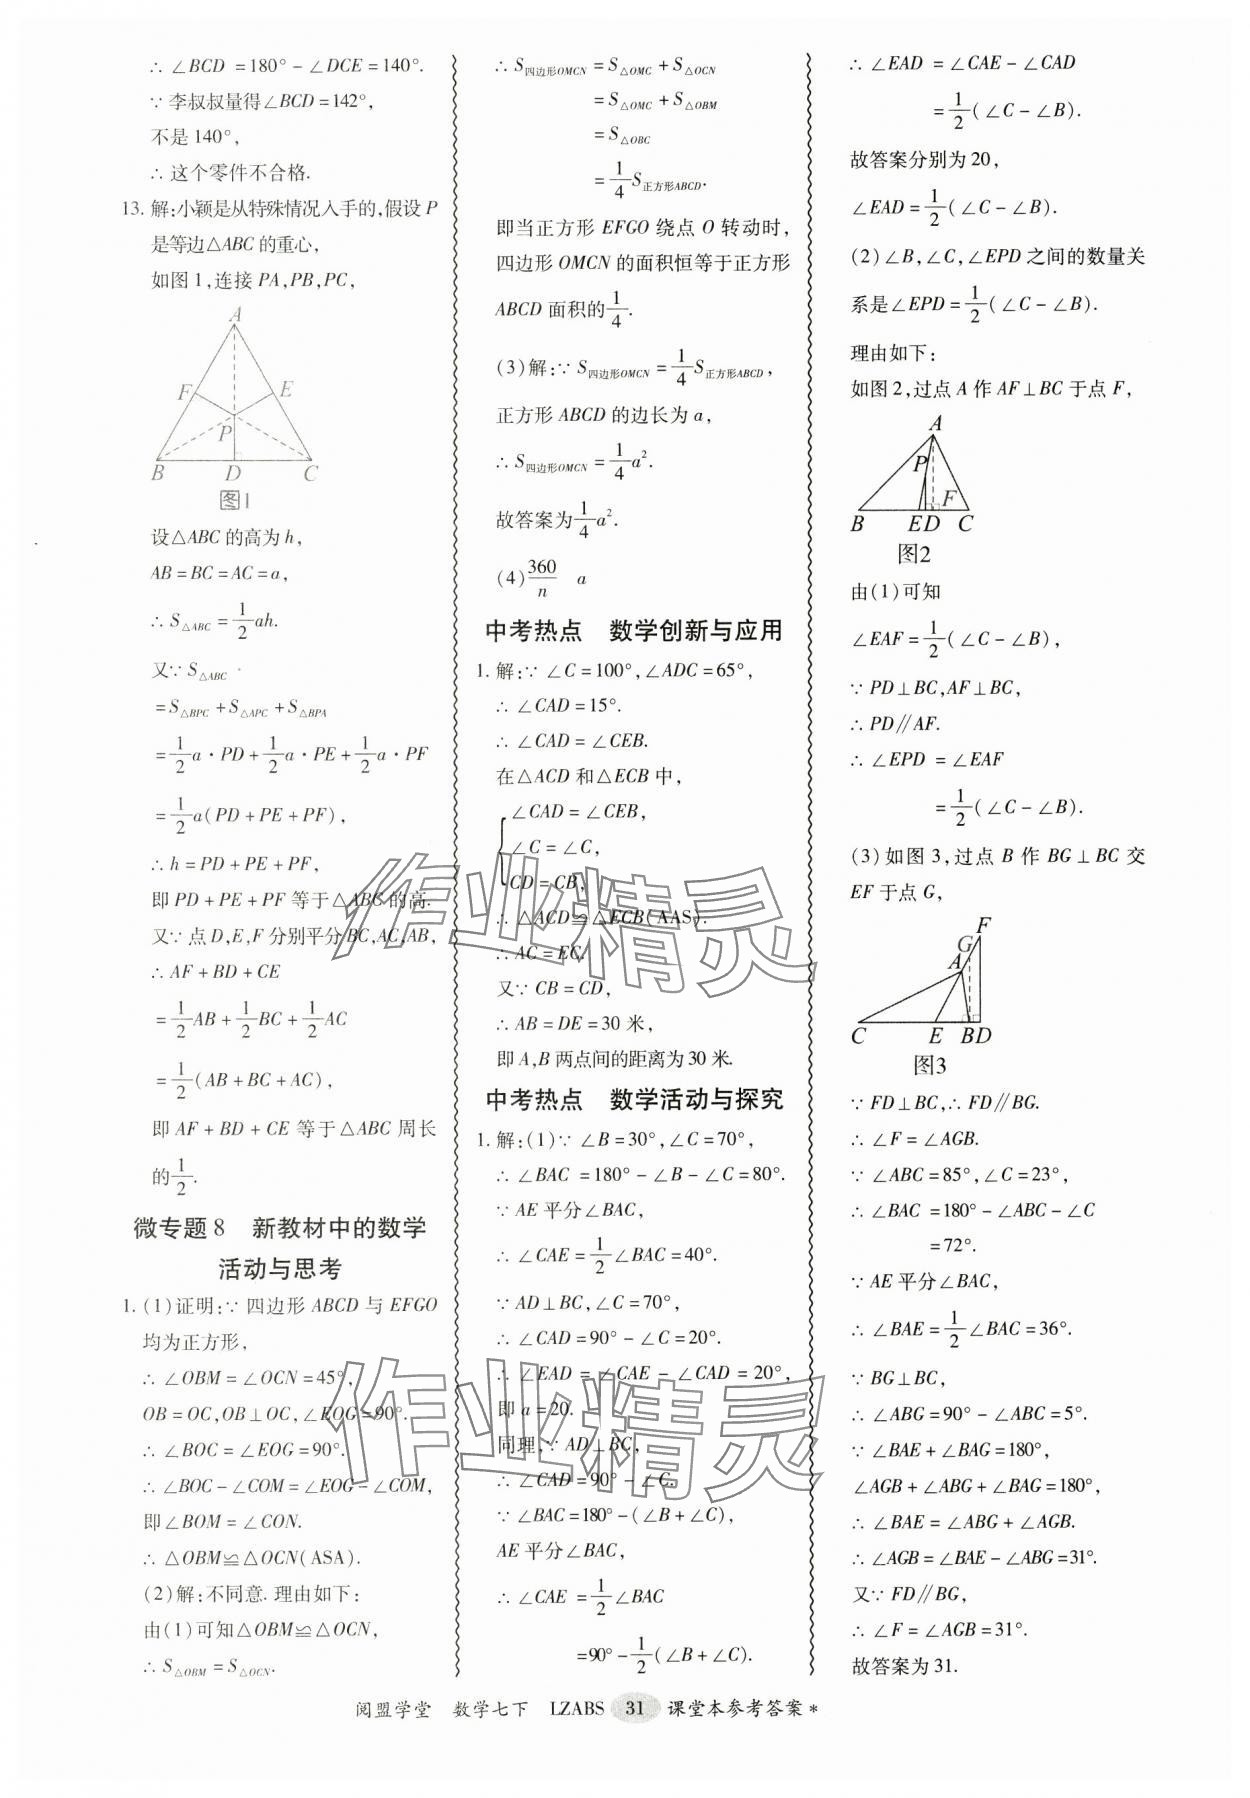 ∴ ∠BCD =180°－∠DCE＝140°.
∵ 李叔叔量得∠BCD＝142°,
不是 140°,
∴ 这个零件不合格.
13. 解:小颖是从特殊情况入手的,假设 P
是等边△ABC 的重心,
如图 1,连接 PA,PB,PC,
A
F
E
P
B
D
C
图1
设△ABC 的高为 h,
AB＝BC＝AC＝a,
∴ S△ABC＝1/2 ah.
又∵ S△ABC
＝S△BPC＋S△APC＋S△BPA
＝1/2 a·PD＋1/2 a·PE＋1/2 a·PF
＝1/2 a(PD＋PE＋PF),
∴ h＝PD＋PE＋PF,
即 PD＋PE＋PF 等于△ABC 的高.
又∵ 点 D,E,F 分别平分 BC,AC,AB,
∴ AF＋BD＋CE
＝1/2 AB＋1/2 BC＋1/2 AC
＝1/2 (AB＋BC＋AC),
即 AF＋BD＋CE 等于△ABC 周长
的 1/2.
微专题 8　新教材中的数学
活动与思考
1. (1)证明:∵ 四边形 ABCD 与 EFGO
均为正方形,
∴ ∠OBM＝∠OCN＝45°,
OB＝OC,OB⊥OC,∠EOG＝90°.
∴ ∠BOC＝∠EOG＝90°.
∴ ∠BOC－∠COM＝∠EOG－∠COM,
即∠BOM＝∠CON.
∴ △OBM≌△OCN(ASA).
(2)解:不同意. 理由如下:
由(1)可知△OBM≌△OCN,
∴ S△OBM＝S△OCN.
∴ S四边形OMCN＝S△OMC＋S△OCN
＝S△OMC＋S△OBM
＝S△OBC
＝1/4 S正方形ABCD.
即当正方形 EFGO 绕点 O 转动时,
四边形 OMCN 的面积恒等于正方形
ABCD 面积的 1/4.
(3)解:∵ S四边形OMCN＝1/4 S正方形ABCD,
正方形 ABCD 的边长为 a,
∴ S四边形OMCN＝1/4 a².
故答案为 1/4 a².
(4) 360/n　a
中考热点　数学创新与应用
1. 解:∵ ∠C＝100°,∠ADC＝65°,
∴ ∠CAD＝15°.
∴ ∠CAD＝∠CEB.
在△ACD 和△ECB 中,
∠CAD＝∠CEB,
∠C＝∠C,
CD＝CB,
∴ △ACD≌△ECB(AAS).
∴ AC＝EC.
又∵ CB＝CD,
∴ AB＝DE＝30 米,
即 A,B 两点间的距离为 30 米.
中考热点　数学活动与探究
1. 解:(1)∵ ∠B＝30°,∠C＝70°,
∴ ∠BAC ＝180°－∠B－∠C＝80°.
∵ AE 平分∠BAC,
∴ ∠CAE＝1/2∠BAC＝40°.
∵ AD⊥BC,∠C＝70°,
∴ ∠CAD＝90°－∠C＝20°.
∴ ∠EAD＝∠CAE－∠CAD＝20°,
即 a＝20.
同理,∵ AD⊥BC,
∴ ∠CAD＝90°－∠C.
∵ ∠BAC＝180°－(∠B＋∠C),
AE 平分∠BAC,
∴ ∠CAE＝1/2∠BAC
＝90°－1/2(∠B＋∠C).
∴ ∠EAD ＝∠CAE－∠CAD
＝1/2(∠C－∠B).
故答案分别为 20,
∠EAD＝1/2(∠C－∠B).
(2)∠B,∠C,∠EPD 之间的数量关
系是∠EPD＝1/2(∠C－∠B).
理由如下:
如图 2,过点 A 作 AF⊥BC 于点 F,
A
P
F
B
E
D
C
图2
由(1)可知
∠EAF＝1/2(∠C－∠B),
∵ PD⊥BC,AF⊥BC,
∴ PD∥AF.
∴ ∠EPD ＝∠EAF
＝1/2(∠C－∠B).
(3)如图 3,过点 B 作 BG⊥BC 交
EF 于点 G,
F
G
A
C
E
B
D
图3
∵ FD⊥BC,∴ FD∥BG.
∴ ∠F＝∠AGB.
∵ ∠ABC＝85°,∠C＝23°,
∴ ∠BAC ＝180°－∠ABC－∠C
＝72°.
∵ AE 平分∠BAC,
∴ ∠BAE＝1/2∠BAC＝36°.
∵ BG⊥BC,
∴ ∠ABG＝90°－∠ABC＝5°.
∵ ∠BAE＋∠BAG＝180°,
∠AGB＋∠ABG＋∠BAG＝180°,
∴ ∠BAE＝∠ABG＋∠AGB.
∴ ∠AGB＝∠BAE－∠ABG＝31°.
又∵ FD∥BG,
∴ ∠F＝∠AGB＝31°.
故答案为 31.
作业精灵
作业精灵
阅盟学堂　数学七下　LZABS　31　课堂本参考答案 *